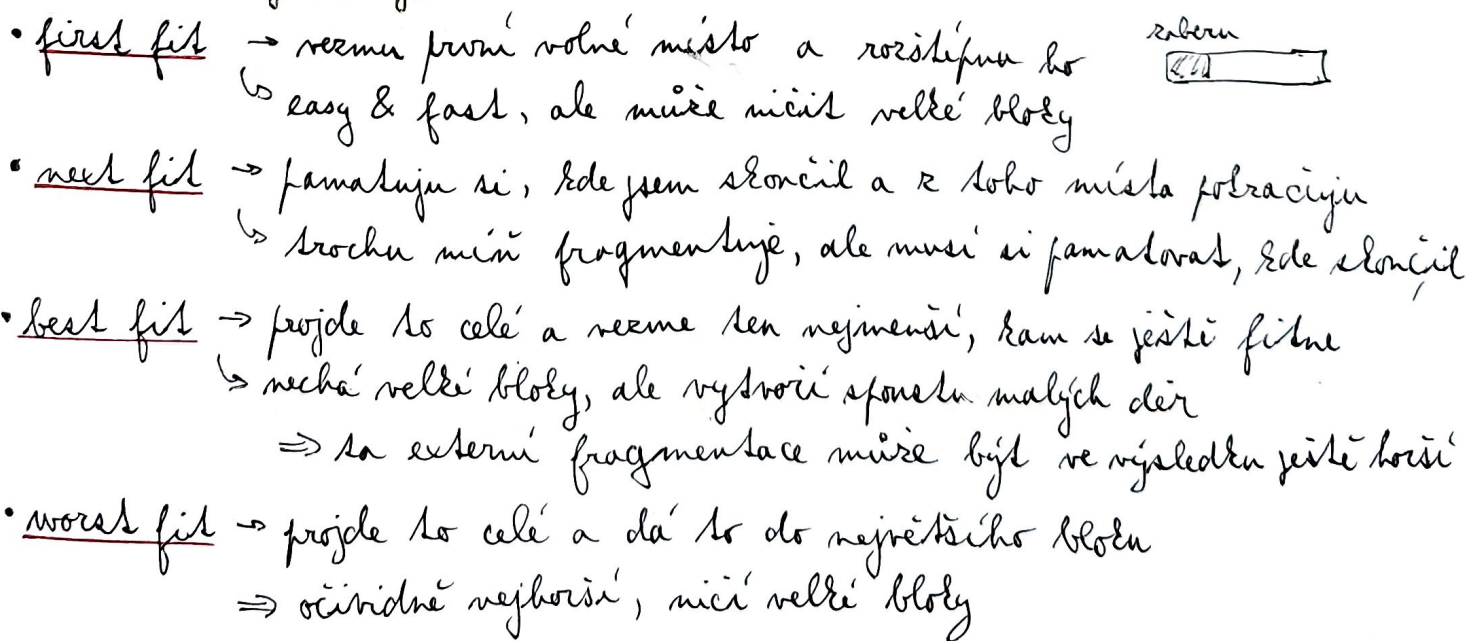 • first fit → vezmu první volné místo a rozštípnu ho
zaberu
↳ easy & fast, ale může ničit velké bloky
• next fit → pamatuju si, kde jsem skončil a z toho místa pokračuju
↳ trochu míň fragmentuje, ale musí si pamatovat, kde skončil
• best fit → projde to celé a vezme ten nejmenší, kam se ještě fitne
↳ nechá velké bloky, ale vytvoří spoustu malých děr
⇒ ta externí fragmentace může být ve výsledku ještě horší
• worst fit → projde to celé a dá to do největšího bloku
⇒ očividně nejhorší, ničí velké bloky